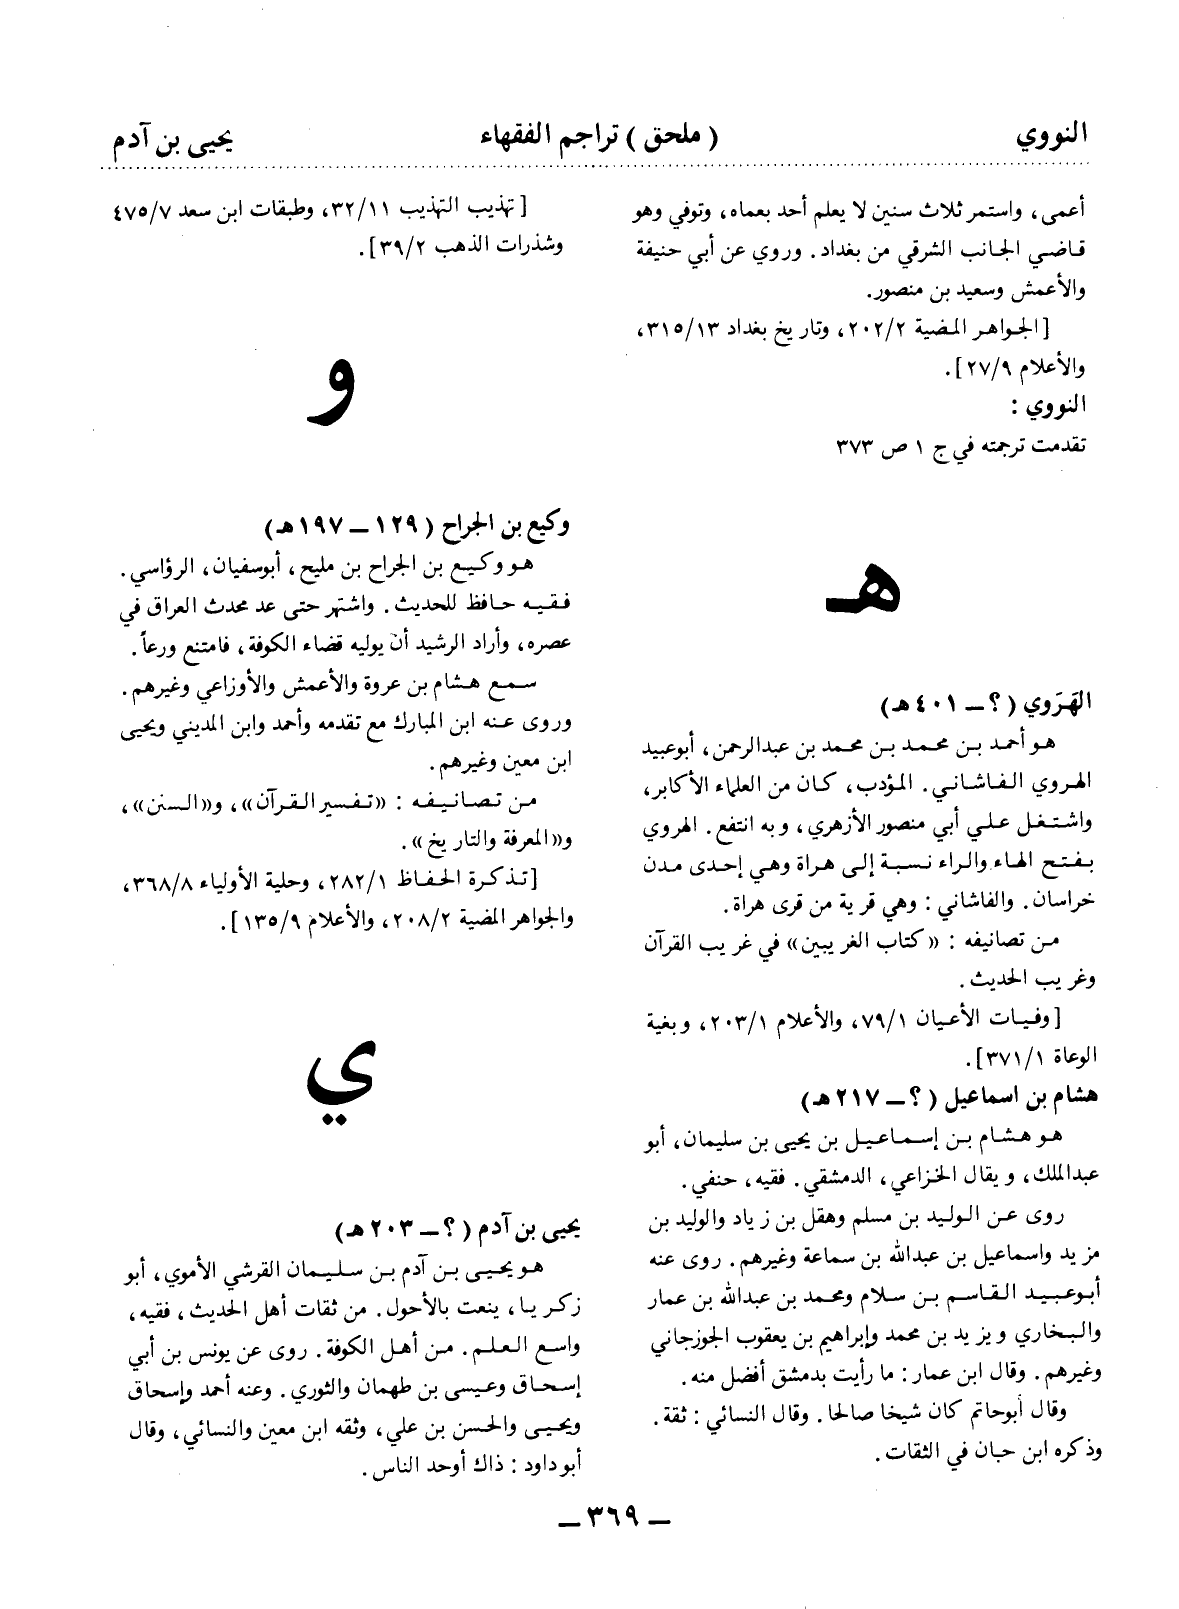 النووي
( ملحق ) تراجم الفقهاء
يحيى بن آدم
أعمى، واستمر ثلاث سنين لا يعلم أحد بعماه، وتوفي وهو
قاضي الجانب الشرقي من بغداد. وروي عن أبي حنيفة
والأعمش وسعيد بن منصور.
[الجواهر المضية ٢٠٢/٢، وتاريخ بغداد ٣١٥/١٣،
والأعلام ٢٧/٩].
النووي :
تقدمت ترجمته في ج ١ ص ٣٧٣
هـ
الهَرَوي (؟ ــ ٤٠١هـ)
هو أحمد بن محمد بن محمد بن عبدالرحمن، أبوعبيد
الهروي الفاشاني. المؤدب، كان من العلماء الأكابر،
واشتغل علي أبي منصور الأزهري، وبه انتفع. الهروي
بفتح الهاء والراء نسبة إلى هراة وهي إحدى مدن
خراسان. والفاشاني : وهي قرية من قرى هراة.
من تصانيفه : «كتاب الغريبين» في غريب القرآن
وغريب الحديث.
[وفيات الأعيان ٧٩/١، والأعلام ٢٠٣/١، وبغية
الوعاة ٣٧١/١].
هشام بن اسماعيل (؟ ــ ٢١٧هـ)
هو هشام بن إسماعيل بن يحيى بن سليمان، أبو
عبدالملك، ويقال الخزاعي، الدمشقي. فقيه، حنفي.
روى عن الوليد بن مسلم وهقل بن زياد والوليد بن
مزيد واسماعيل بن عبدالله بن سماعة وغيرهم. روى عنه
أبوعبيد القاسم بن سلام ومحمد بن عبدالله بن عمار
والبخاري ويزيد بن محمد وإبراهيم بن يعقوب الجوزجاني
وغيرهم. وقال ابن عمار : ما رأيت بدمشق أفضل منه.
وقال أبوحاتم كان شيخا صالحا. وقال النسائي : ثقة.
وذكره ابن حبان في الثقات.
[تهذيب التهذيب ٣٢/١١، وطبقات ابن سعد ٤٧٥/٧
وشذرات الذهب ٣٩/٢].
و
وكيع بن الجراح (١٢٩ ــ ١٩٧هـ)
هو وكيع بن الجراح بن مليح، أبوسفيان، الرؤاسي.
فقيه حافظ للحديث. واشتهر حتى عد محدث العراق في
عصره، وأراد الرشيد أن يوليه قضاء الكوفة، فامتنع ورعاً.
سمع هشام بن عروة والأعمش والأوزاعي وغيرهم.
وروى عنه ابن المبارك مع تقدمه وأحمد وابن المديني ويحيى
ابن معين وغيرهم.
من تصانيفه : «تفسير القرآن»، و«السنن»،
و«المعرفة والتاريخ».
[تذكرة الحفاظ ٢٨٢/١، وحلية الأولياء ٣٦٨/٨،
والجواهر المضية ٢٠٨/٢، والأعلام ١٣٥/٩].
ي
يحيى بن آدم (؟ ــ ٢٠٣هـ)
هو يحيى بن آدم بن سليمان القرشي الأموي، أبو
زكريا، ينعت بالأحول. من ثقات أهل الحديث، فقيه،
واسع العلم. من أهل الكوفة. روى عن يونس بن أبي
إسحاق وعيسى بن طهمان والثوري. وعنه أحمد وإسحاق
ويحيى والحسن بن علي، وثقه ابن معين والنسائي، وقال
أبو داود : ذاك أوحد الناس.
ــ ٣٦٩ ــ